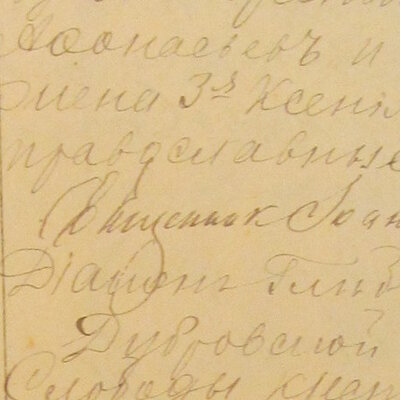 Афонасьевъ и
жена 3я Ксен
православные
Священник Іоан
Діакон Глѣб
Дубровской
Слободы